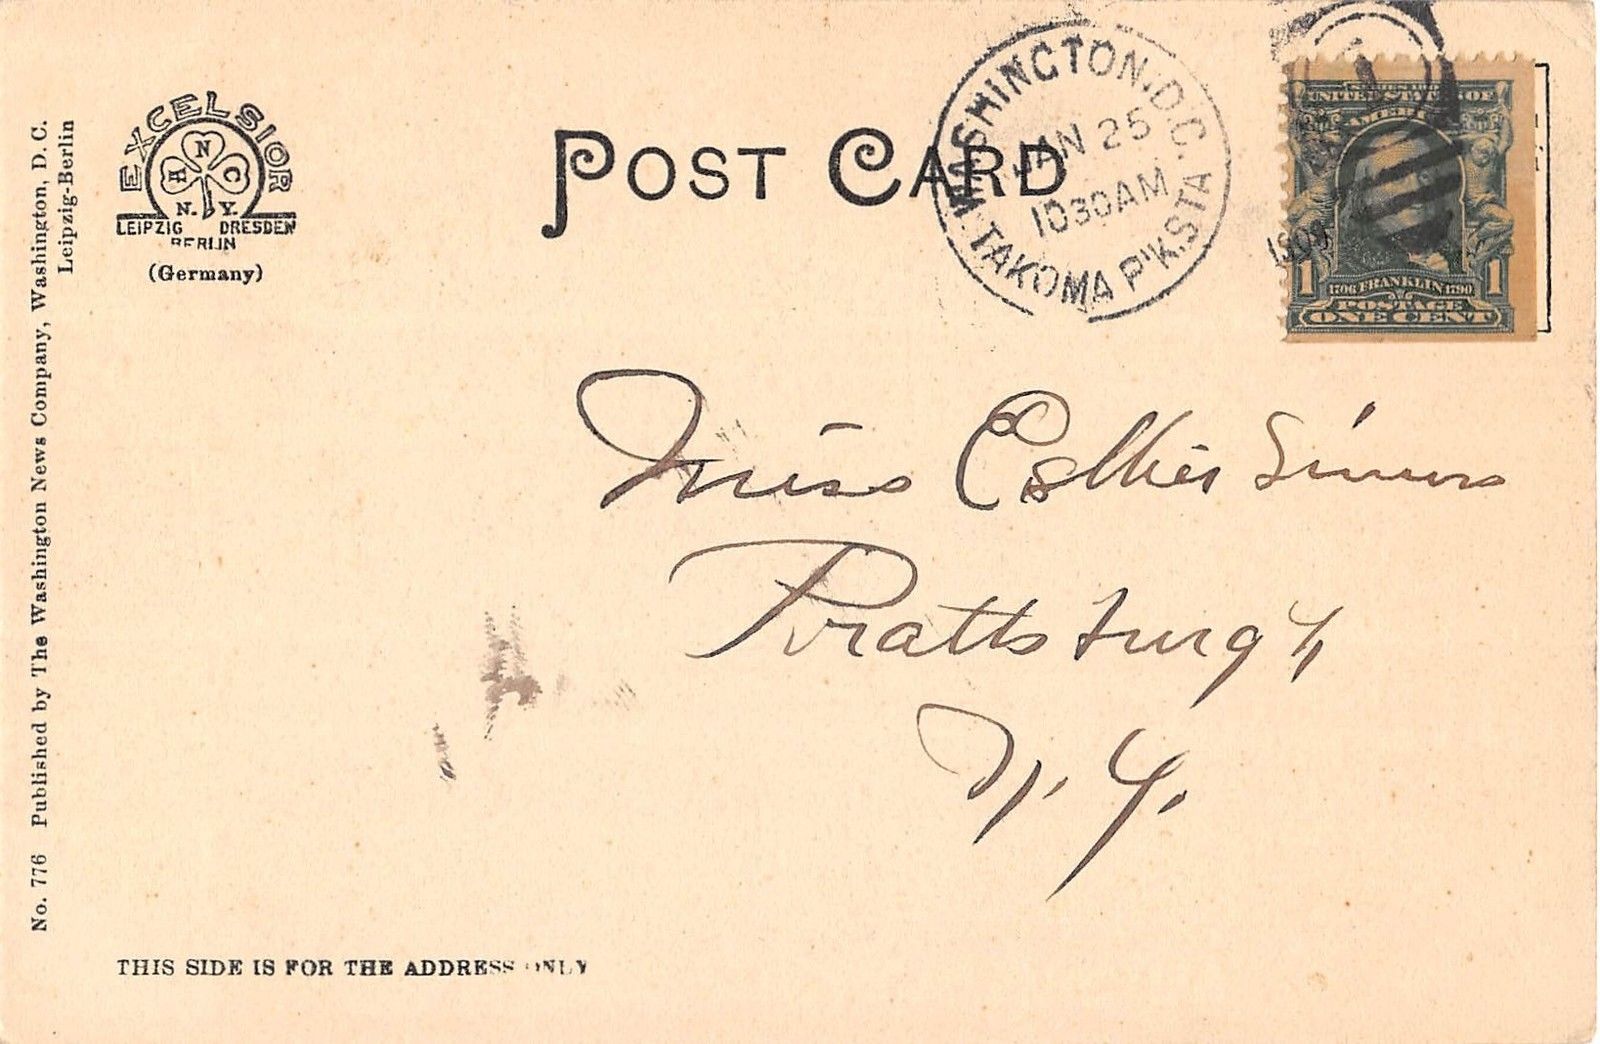 EXCELSIOR
A N C
N. Y.
LEIPZIG DRESDEN
BERLIN
(Germany)
POST CARD
WASHINGTON, D.C.
JAN 25
1030AM
TAKOMA P'K. STA.
UNITED STATES OF
AMERICA
1 1706 FRANKLIN 1790 1
POSTAGE
ONE CENT
Miss Esther Simons
Prattsburgh
N. Y.
No. 776 Published by The Washington News Company, Washington, D. C.
Leipzig-Berlin
THIS SIDE IS FOR THE ADDRESS ONLY